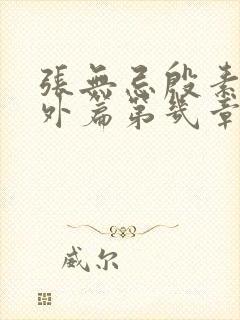 張無忌殷素
外篇第幾章
威尔